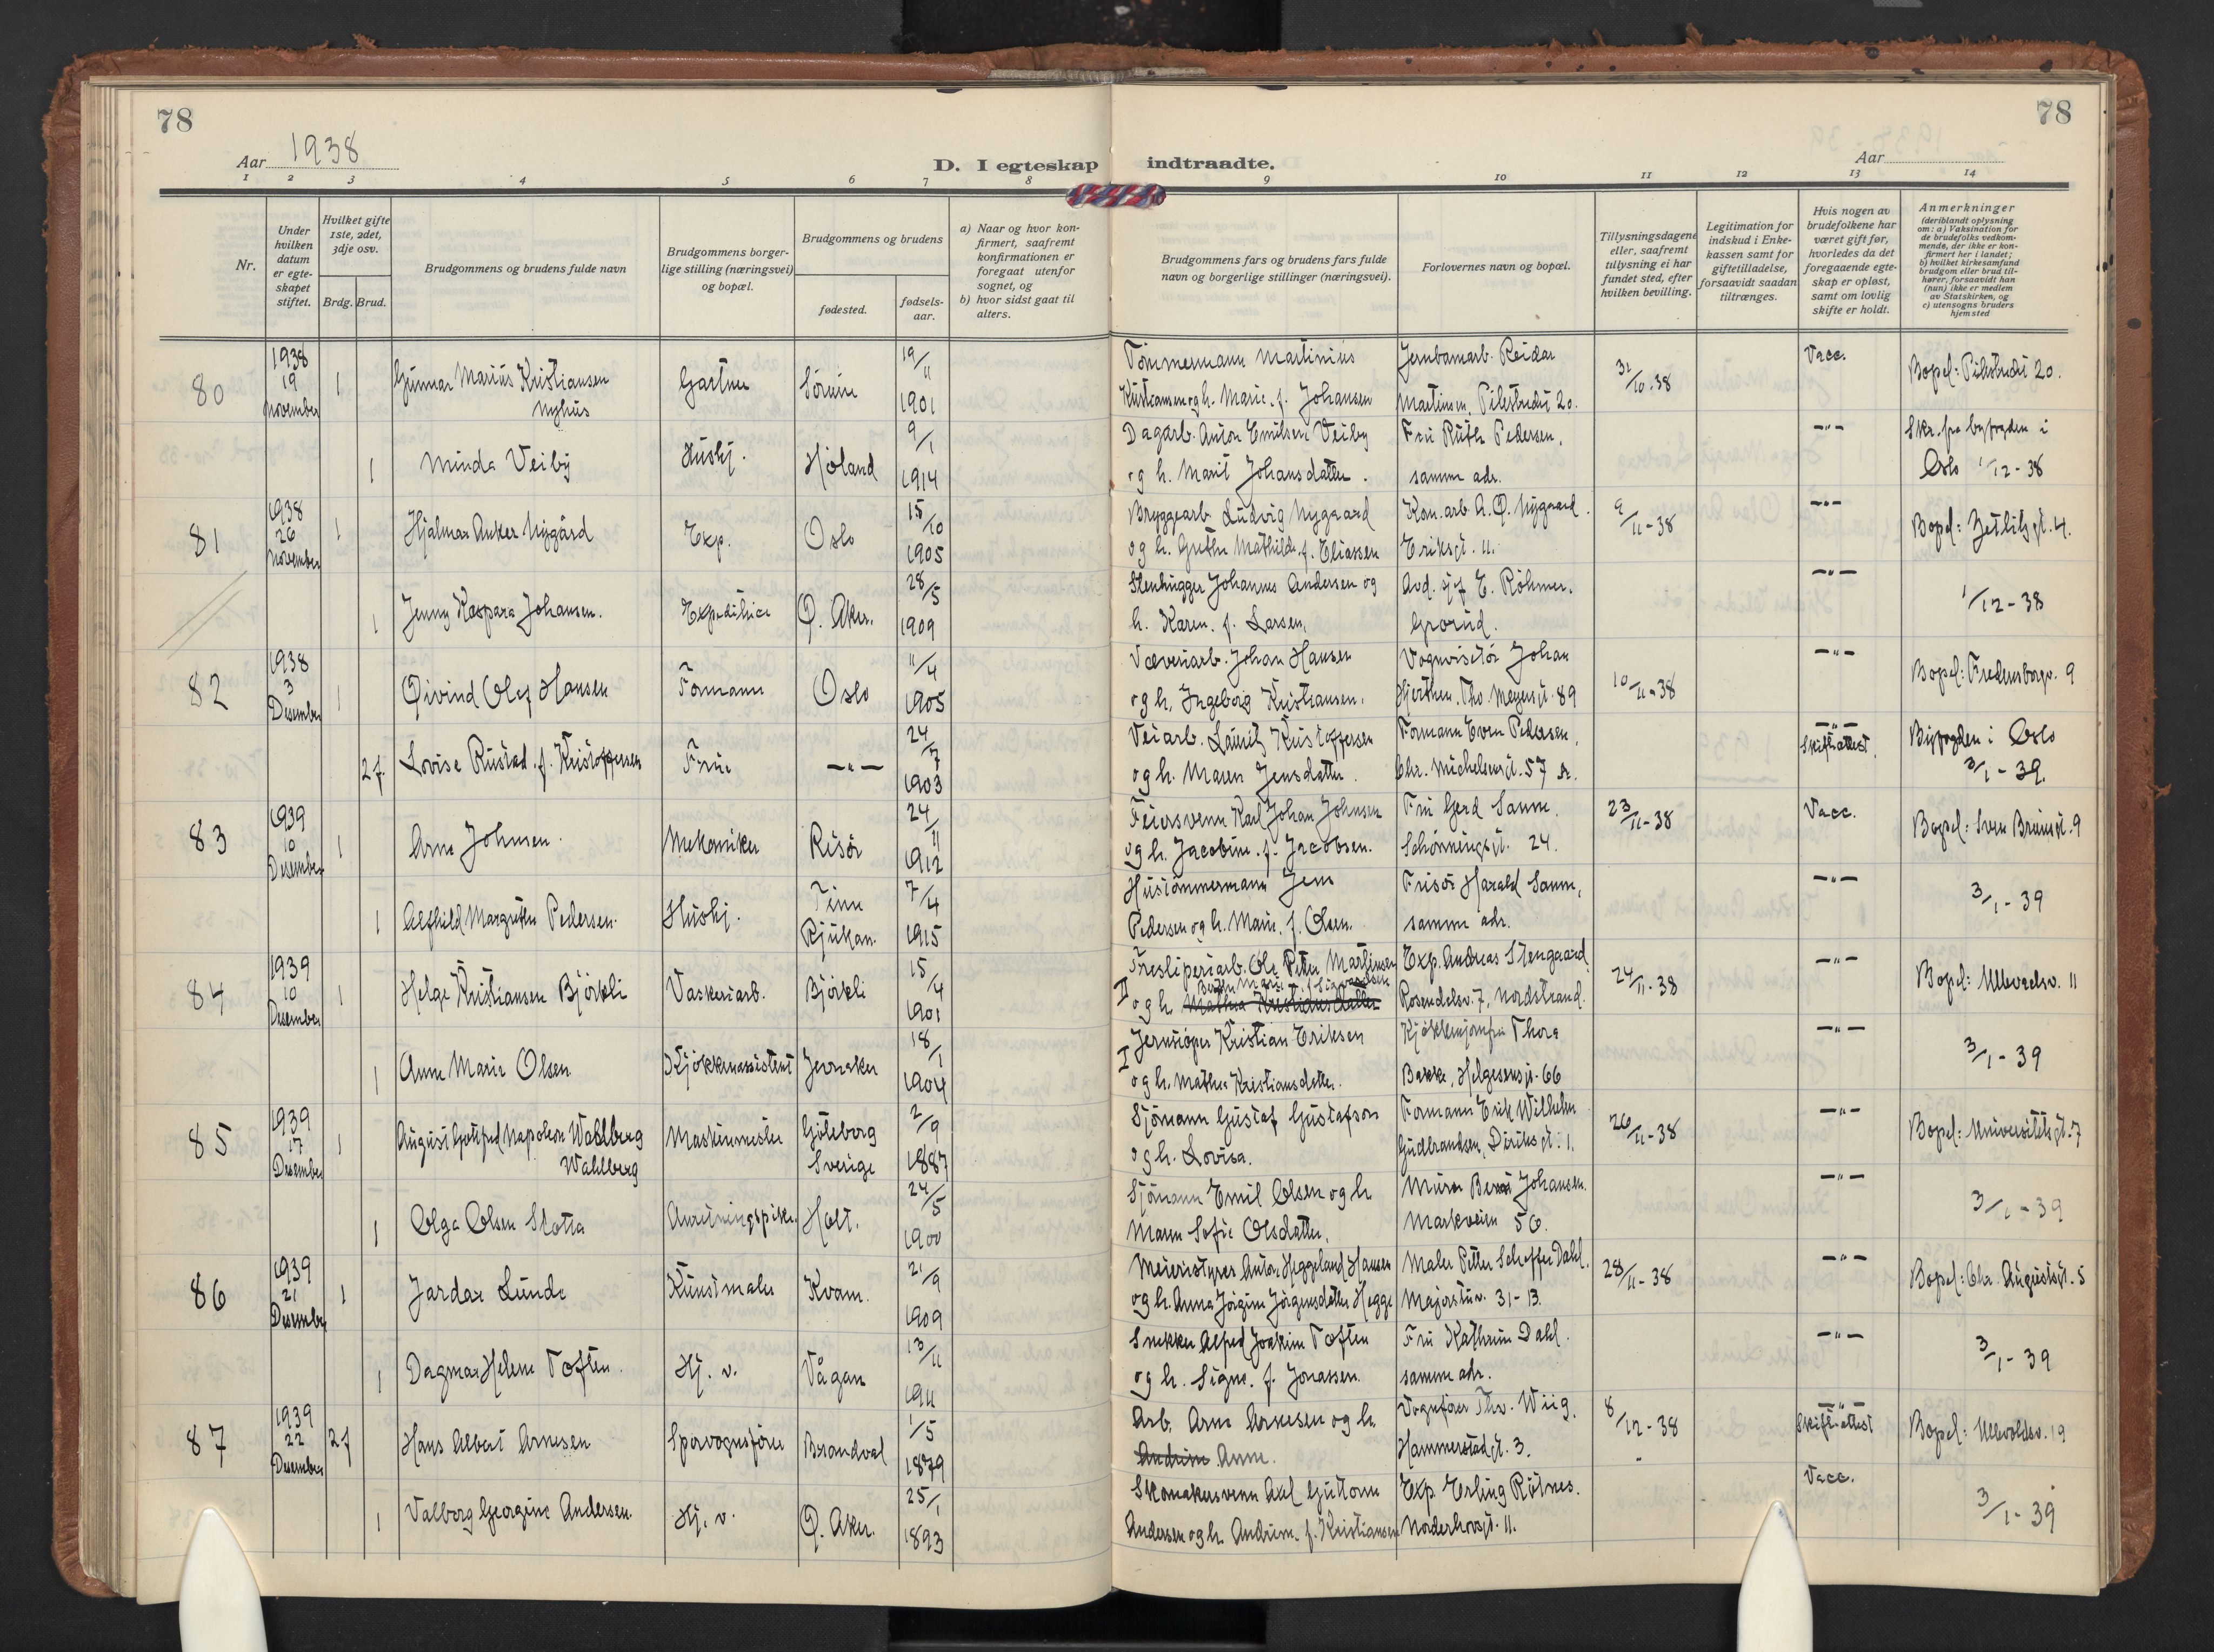 78
78
Aar 1938
D. I egteskap indtraadte.
Aar
1 2 3 4 5 6 7 8 9 10 11 12 13 14
Nr.
Under hvilken datum er egteskapet stiftet.
Hvilket gifte 1ste, 2det, 3dje osv.
Brdg. Brud.
Brudgommens og brudens fulde navn
Brudgommens borgerlige stilling (næringsvei) og bopæl.
Brudgommens og brudens
fødested.
fødselsaar.
a) Naar og hvor konfirmert, saafremt konfirmationen er foregaat utenfor sognet, og
b) hvor sidst gaat til alters.
Brudgommens fars og brudens fars fulde navn og borgerlige stillinger (næringsvei).
Forlovernes navn og bopæl.
Tillysningsdagene eller, saafremt tillysning ei har fundet sted, efter hvilken bevilling.
Legitimation for indskud i Enkekassen samt for giftetilladelse, forsaavidt saadan tiltrænges.
Hvis nogen av brudefolkene har været gift før, hvorledes da det foregaaende egteskap er opløst, samt om lovlig skifte er holdt.
Anmerkninger (deriblandt oplysning om: a) Vaksination for de brudefolks vedkommende, der ikke er konfirmert her i landet; b) hvilket kirkesamfund brudgom eller brud tilhører, forsaavidt han (hun) ikke er medlem av Statskirken, og c) utensogns bruders hjemsted
80 1938 19 November 1 Gunnar Marius Kristiansen Nyhus Gartner Sörum 19/11 1901
Tömmermann Martinius Kristiansen og h. Marie. f. Johansen
Jernbanearb. Reidar Martinsen, Pilestredet 20.
31/10-38 Vacc. Bopel: Pilestredet 20.
1 Minda Veiby Hushj. Höland 9/1 1914
Dagarb. Anton Emilsen Veiby og h. Marit Johansdatter.
Fru Ruth Pedersen, samme adr.
—"— Skr. fra byfogden i Oslo 1/12-38
81 1938 26 November 1 Hjalmar Anker Nygård Exp. Oslo 15/10 1905
Bryggearb. Ludvig Nygaard og h. Grethe Mathilde f. Eliassen
Kom.arb. A. O. Nygaard. Eriksgt. 11.
9/11-38 —"— Bopel: Zetlitzgt. 4.
1 Jenny Kaspara Johansen. Expeditrice Ö. Aker. 28/5 1909
Stenhugger Johannes Andersen og h. Karen. f. Larsen,
Avd. sjef E. Röhmer. Grorud.
—"— 1/12-38
82 1938 3 Desember 1 Öivind Olaf Hansen Formann Oslo 11/4 1905
Væveriarb. Johan Hansen og h. Ingeborg Kristiansen.
Vognvisitör Johan Hjerthen. Tho. Meyersgt. 89
10/11-38 —"— Bopel: Fredensborgv. 9
2 f. Lovise Rustad. f. Kristoffersen Frue —"— 24/7 1903
Veiarb. Lauritz Kristoffersen og h. Maren Jensdatter.
Formann Even Pedersen, Chr. Michelsensgt. 57 A.
—"— Skifteattest. Byfogden i Oslo 3/1-39.
83 1939 10 Desember 1 Arne Johnsen. Mekaniker Risör 24/11 1912
Feiersvenn Karl Johan Johnsen og h. Jacobine. f. Jacobsen.
Fru Gerd Sanne. Schönningsgt. 24.
23/11-38 Vacc. Bopel: Sven Bruunsgt. 9
1 Alfhild Margrethe Pedersen. Hushj. Tinn Rjukan. 7/4 1915
Hustömmermann Jens Pedersen og h. Marie. f. Olsen.
Frisör Harald Sanne, samme adr.
—"— 3/1-39
84 1939 10 Desember 1 Helge Kristiansen Björkli Vaskeriarb. Björkli 15/4 1901
II Tresliperiarb. Ole Petter Martinsen og h. Mathea Kristiansdatter
Exp. Andreas Stengaard. Rosendalsv. 7, Nordstrand.
24/11-38 —"— Bopel: Ullevaalsv. 11
1 Anne Marie Olsen Kjökkenassistent Jevnaker 18/1 1904
I Jernstöper Kristian Eriksen og h. Mathea Kristiansdatter.
Kjökkenjomfru Thora Bakke, Helgesensgt. 66
—"— 3/1-39
85 1939 17 Desember 1 August Gottfred Napoleon Wahlberg Wahlberg Maskinmester Göteborg Sverige 2/9 1887
Sjömann Gustaf Gustafson og h. Lovisa.
Formann Erik Wilhelm Gudbrandsen, Diriksgt. 1.
26/11-38 —"— Bopel: Universitetsgt. 7
1 Olga Olsen Slotta Anretningspike. Holt. 24/5 1900
Sjömann Emil Olsen og h. Maren Sofie Olsdatter,
Murer Johansen. Markveien 56.
—"— 3/1-39
86 1939 21 Desember 1 Jardar Lunde Kunstmaler Kvam. 21/9 1909
Meieristyrer Anton Heggeland Hansen og h. Anna Jörgine Jörgensdatter Hegge
Maler Petter Scheffer Dahl. Majorstuv. 31-13.
28/11-38 —"— Bopel: Chr. Augustsgt. 5
1 Dagmar Helene Toften. Hj. v. Vågan 13/11 1911
Snekker Alfred Joakim Toften og h. Signe. f. Jonassen.
Fru Kathrine Dahl. samme adr.
—"— 3/1-39
87 1939 22 Desember 2 f Hans Albert Arnesen Sporvognsförer Brandval 1/5 1879
Arb. Arne Arnesen og h. Andrine Anne.
Vognförer Thv. Wiig. Hammerstadgt. 3.
8/12-38 —"— Skifteattest Bopel: Ullevoldsv. 19
1 Valborg Georgine Andersen. Hj. v. Ö. Aker. 25/1 1893
Skomakersvenn Axel Guttorm Andersen og h. Andrine. f. Kristiansen
Exp. Erling Rötnes. Norderhovsgt. 11.
Vacc. 3/1-39